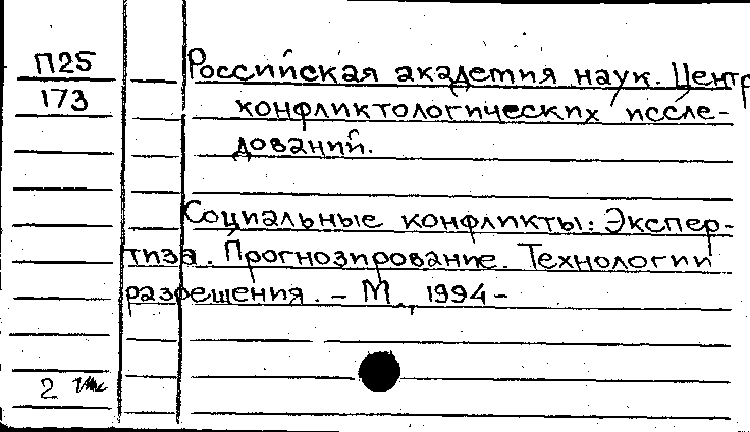 П25 Российская академия наук. Центр
173 конфликтологических иссле-
дований.
Социальные конфликты: Экспер-
тиза. Прогнозирование. Технологии
разрешения. – М., 1994-
2